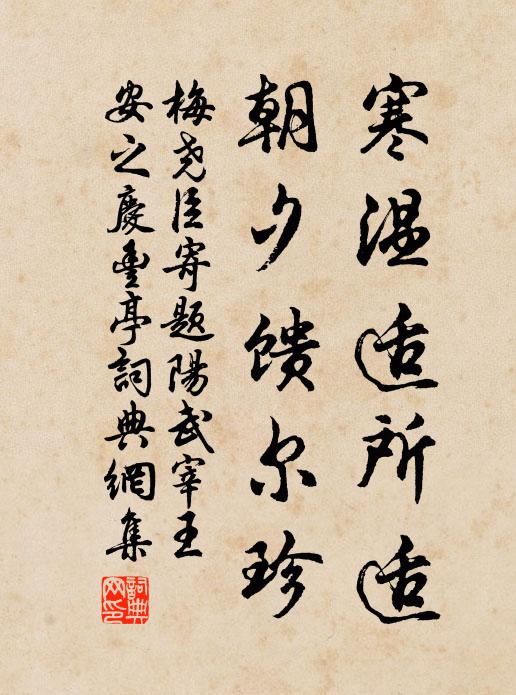 寒温适所适
朝夕馈尔珍
梅尧臣寄题陽武宰王
安之慶豊亭詞典網集
詞典网印